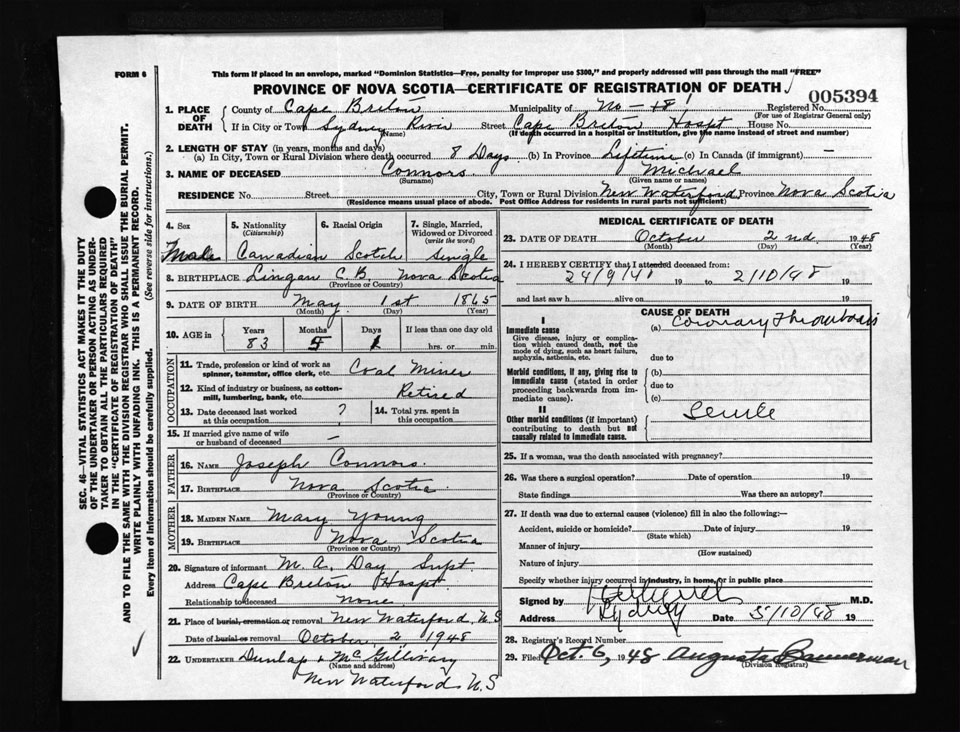 FORM 6
This form if placed in an envelope, marked "Dominion Statistics—Free, penalty for improper use $300," and properly addressed will pass through the mail "FREE"
PROVINCE OF NOVA SCOTIA—CERTIFICATE OF REGISTRATION OF DEATH
005394
1. PLACE OF DEATH
County of Cape Breton Municipality of No - 48 Registered No.
(For use of Registrar General only)
If in City or Town Sydney River Street Cape Breton Hospt House No.
(Name) (If death occurred in a hospital or institution, give the name instead of street and number)
2. LENGTH OF STAY (in years, months and days)
(a) In City, Town or Rural Division where death occurred 8 Days (b) In Province Lifetime (c) In Canada (if immigrant) —
3. NAME OF DECEASED Connors Michael
(Surname) (Given name or names)
RESIDENCE No. Street City, Town or Rural Division New Waterford Province Nova Scotia
(Residence means usual place of abode. Post Office Address for residents in rural parts not sufficient)
4. Sex Male
5. Nationality (Citizenship) Canadian
6. Racial Origin Scotch
7. Single, Married, Widowed or Divorced (write the word) Single
8. BIRTHPLACE Lingan C.B Nova Scotia
(Province or Country)
9. DATE OF BIRTH May 1st 1865
(Month) (Day) (Year)
10. AGE in Years 83 Months 5 Days 1 If less than one day old hrs. or min.
OCCUPATION
11. Trade, profession or kind of work as spinner, teamster, office clerk, etc. Coal Miner
12. Kind of industry or business, as cotton-mill, lumbering, bank, etc. Retired
13. Date deceased last worked at this occupation ?
14. Total yrs. spent in this occupation
15. If married give name of wife or husband of deceased —
FATHER
16. NAME Joseph Connors.
17. BIRTHPLACE Nova Scotia
(Province or Country)
MOTHER
18. MAIDEN NAME Mary Young
19. BIRTHPLACE Nova Scotia
(Province or Country)
20. Signature of informant M. A. Day Supt.
Address Cape Breton Hospt.
Relationship to deceased None
21. Place of burial, cremation or removal New Waterford, N.S
Date of burial or removal October 2 1948
22. UNDERTAKER Dunlap & McGillivary
(Name and address)
New Waterford N.S
MEDICAL CERTIFICATE OF DEATH
23. DATE OF DEATH October 2nd. 1948
(Month) (Day)
24. I HEREBY CERTIFY that I attended deceased from:
24/9/48 19 to 2/10/48 19
and last saw h alive on 19
CAUSE OF DEATH
I
Immediate cause
Give disease, injury or complication which caused death, not the mode of dying, such as heart failure, asphyxia, asthenia, etc.
(a) Coronary Thrombosis
due to
Morbid conditions, if any, giving rise to immediate cause (stated in order proceeding backwards from immediate cause).
(b)
due to
(c)
II
Other morbid conditions (if important) contributing to death but not causally related to immediate cause.
Senile
25. If a woman, was the death associated with pregnancy?
26. Was there a surgical operation? Date of operation 19
State findings Was there an autopsy?
27. If death was due to external causes (violence) fill in also the following:—
Accident, suicide or homicide? Date of injury 19
(State which)
Manner of injury
(How sustained)
Nature of injury
Specify whether injury occurred in industry, in home, or in public place
Signed by M.D.
Address Sydney Date 5/10/48 19
28. Registrar's Record Number
29. Filed Oct. 6, 1948 Augusta Bannerman
(Division Registrar)
SEC. 46—VITAL STATISTICS ACT MAKES IT THE DUTY
OF THE UNDERTAKER OR PERSON ACTING AS UNDER-
TAKER TO OBTAIN ALL THE PARTICULARS REQUIRED
IN THE "CERTIFICATE OF REGISTRATION OF DEATH"
AND TO FILE THE SAME WITH THE DIVISION REGISTRAR WHO SHALL ISSUE THE BURIAL PERMIT.
WRITE PLAINLY WITH UNFADING INK. THIS IS A PERMANENT RECORD.
Every item of information should be carefully supplied. (See reverse side for instructions.)